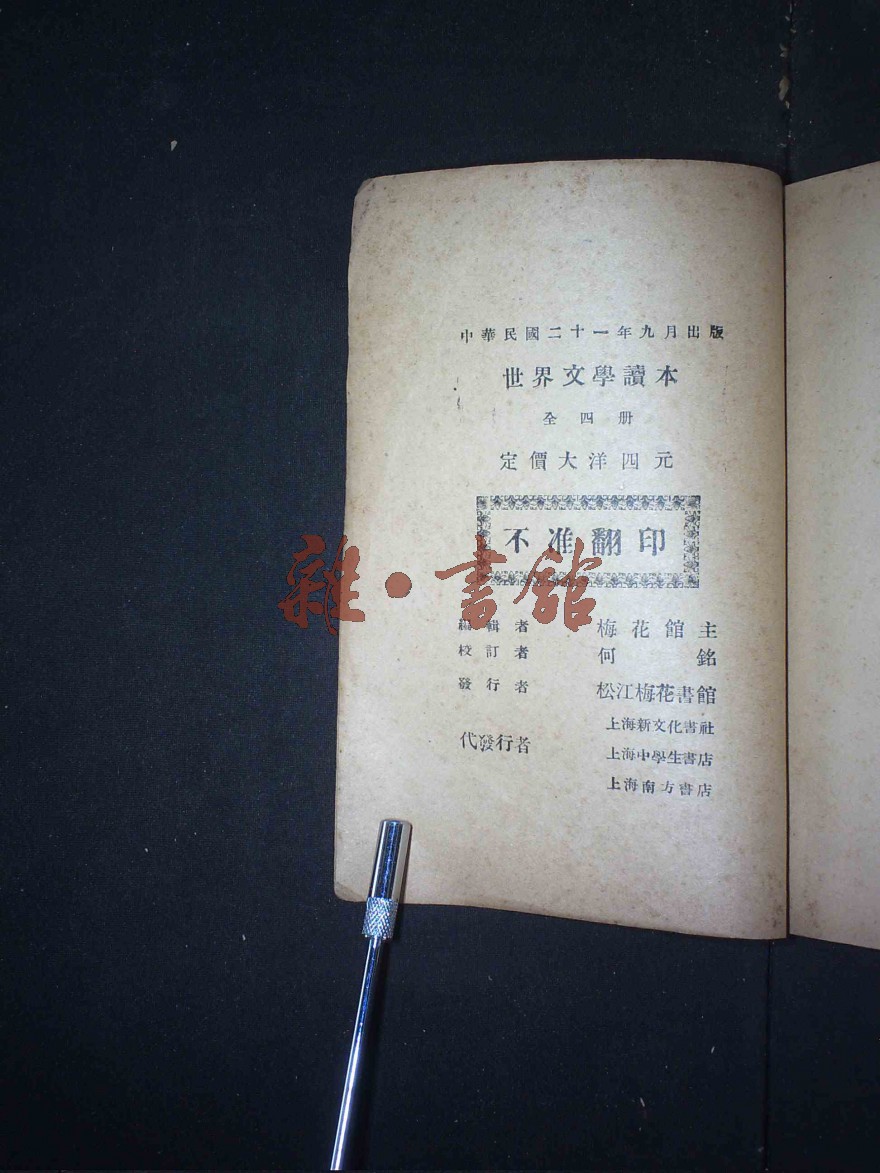 中華民國二十一年九月出版
世界文學讀本
全四册
定價大洋四元
不准翻印
雜·書館
編輯者 梅花館主
校訂者 何銘
發行者 松江梅花書館
代發行者
上海新文化書社
上海中學生書店
上海南方書店